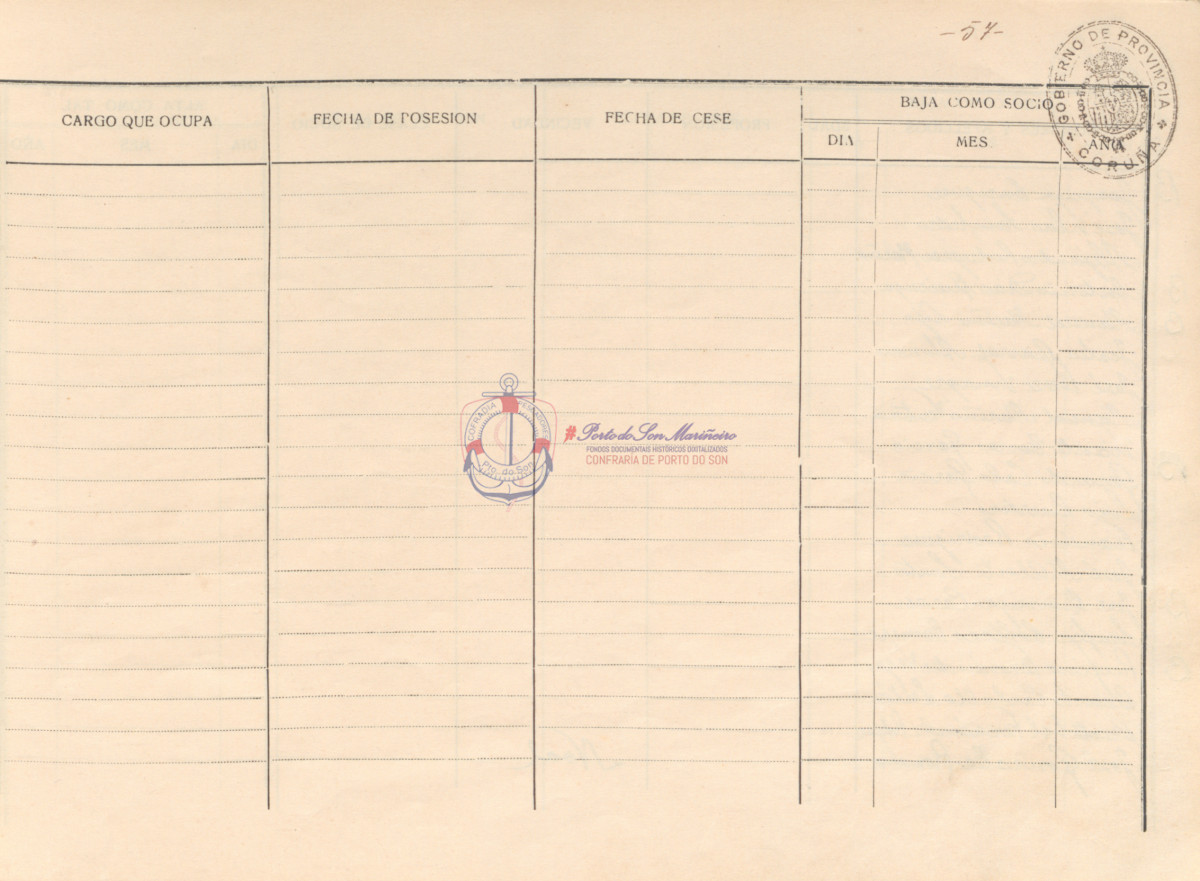 -57-
GOBIERNO DE PROVINCIA
CORUÑA
CARGO QUE OCUPA
FECHA DE POSESION
FECHA DE CESE
BAJA COMO SOCIO
DIA
MES
AÑO
COFRADIA PESCADORES
Pto. do Son
#Porto do Son Mariñeiro
FONDOS DOCUMENTAIS HISTÓRICOS DIXITALIZADOS
CONFRARÍA DE PORTO DO SON